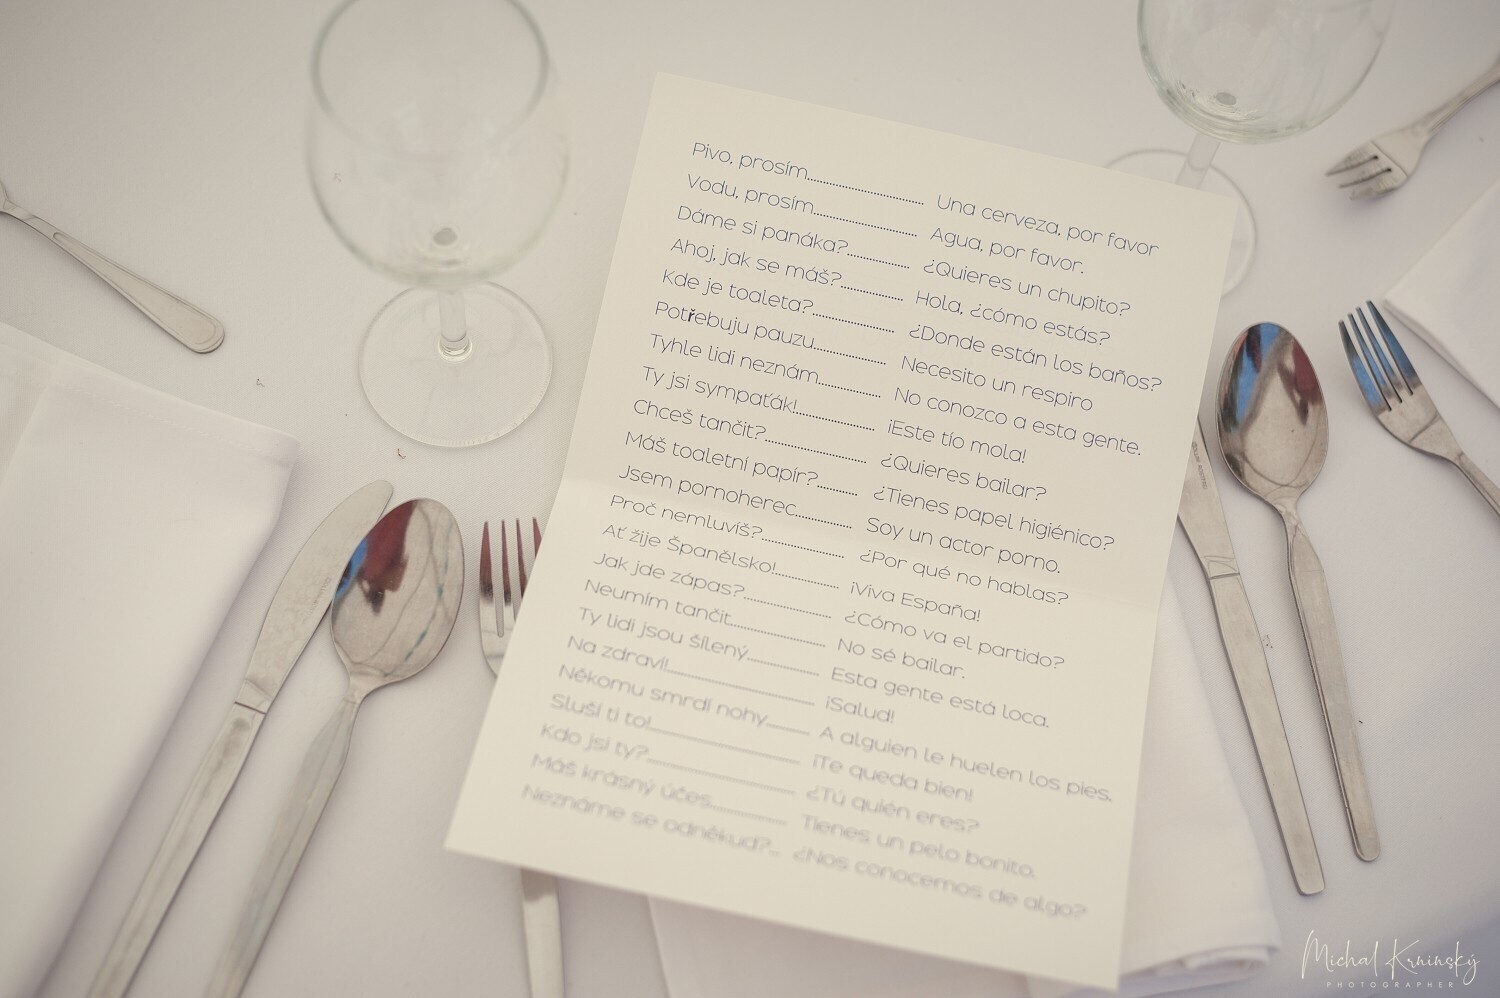 Pivo, prosím Una cerveza, por favor
Vodu, prosím Agua, por favor.
Dáme si panáka? ¿Quieres un chupito?
Ahoj, jak se máš? Hola, ¿cómo estás?
Kde je toaleta? ¿Donde están los baños?
Potřebuju pauzu Necesito un respiro
Tyhle lidi neznám No conozco a esta gente.
Ty jsi sympaťák! ¡Este tío mola!
Chceš tančit? ¿Quieres bailar?
Máš toaletní papír? ¿Tienes papel higiénico?
Jsem pornoherec Soy un actor porno.
Proč nemluvíš? ¿Por qué no hablas?
Ať žije Španělsko! ¡Viva España!
Jak jde zápas? ¿Cómo va el partido?
Neumím tančit No sé bailar.
Ty lidi jsou šílený Esta gente está loca.
Na zdraví! ¡Salud!
Někomu smrdí nohy A alguien le huelen los pies.
Sluší ti to! ¡Te queda bien!
Kdo jsi ty? ¿Tú quién eres?
Máš krásný účes Tienes un pelo bonito.
Neznáme se odněkud? ¿Nos conocemos de algo?
Michal Krninský
PHOTOGRAPHER